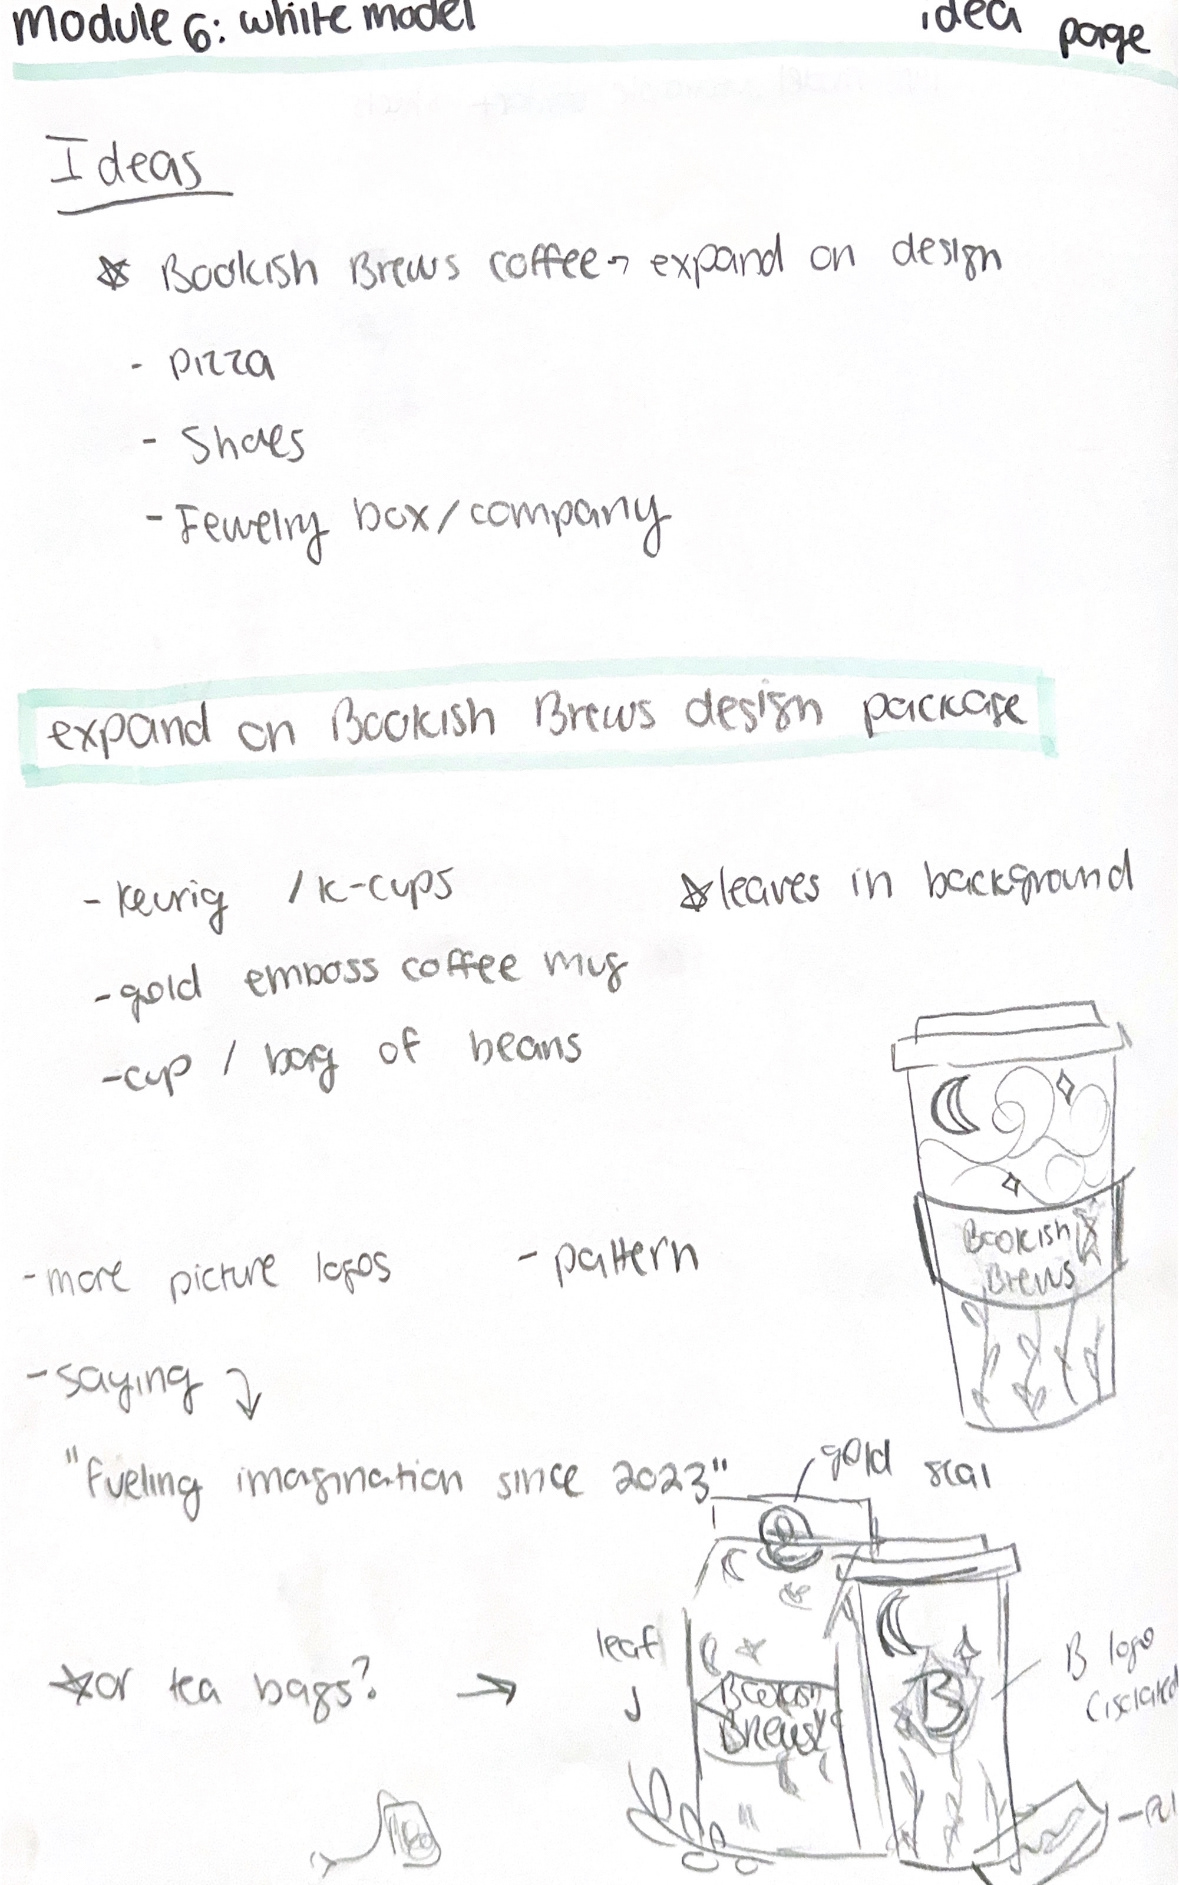 Module 6: white model idea page
Ideas
Bookish Brews coffee → expand on design
- pizza
- Shoes
- Jewelry box/company
expand on Bookish Brews design package
- keurig / k-cups
leaves in background
- gold emboss coffee mug
- cup / bag of beans
Bookish
Brews
- more picture logos
- pattern
- saying
"fueling imagination since 2023"
gold seal
or tea bags? →
leaf
Bookish
Brews
B
B logo